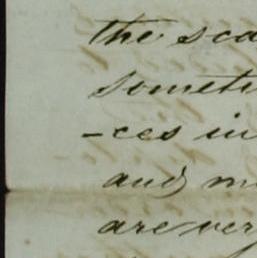 the sca
someti
-ces in
and m
are ver